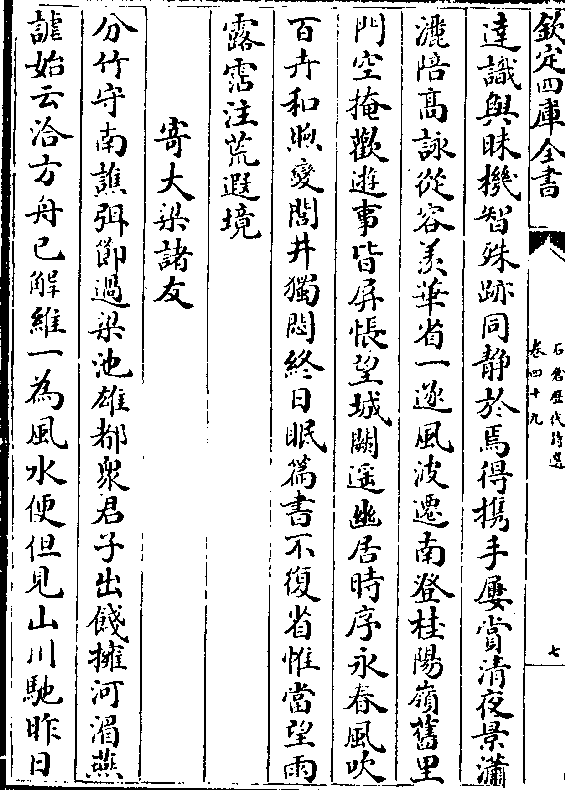 欽定四庫全書
石倉歷代詩選
卷四十九
七
達識與昧機智殊跡同静於焉得携手屢賞清夜景瀟
灑陪高詠從容羨華省一逐風波遷南登桂陽嶺舊里
門空掩歡遊事皆屏悵望城闕遥幽居時序永春風吹
百卉和煦變閭井獨悶終日眠篇書不復省惟當望雨
露霑注荒遐境
寄大梁諸友
分竹守南譙弭節過梁池雄都衆君子出餞擁河湄燕
謔始云洽方舟已解維一為風水便但見山川馳昨日